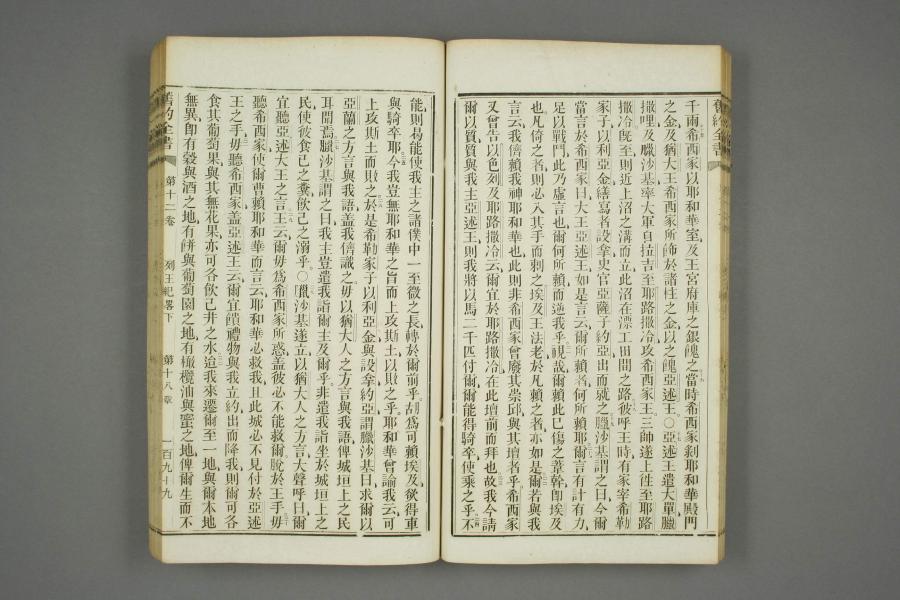 千兩希西家以耶和華室及王宮府庫之銀餽之當時希西家剎耶和華殿門
之金及猶大王希西家所飾於諸柱之金以之餽亞述王○亞述王遣大單臘
撒哩及臘沙基率大軍自拉吉至耶路撒冷攻希西家王三帥遂上往至耶路
撒冷旣至則近上沼之溝而立此沼在漂工田間之路彼呼王時有家宰希勒
家子以利亞金繕寫者設拿史官亞薩子約亞出而就之臘沙基謂之曰今爾
當言於希西家曰大王亞述王如是言云爾所賴者何所賴耶爾言有計有力
足以戰鬥此乃虛言也爾何所賴而逆我乎視哉爾賴此已傷之葦幹卽埃及
也凡倚之者則必入其手而刺之埃及王法老於凡賴之者亦如是爾若與我
言云我儕賴我神耶和華也此則非希西家曾廢其崇邱與其壇者乎希西家
又曾告以色列及耶路撒冷云爾宜於耶路撒冷在此壇前而拜也故我今請
爾以質質與我主亞述王則我將以馬二千匹付爾爾能得騎卒使乘之乎不
能則曷能使我主之諸僕中一至微之長轉於爾前乎胡爲可賴埃及欲得車
與騎卒耶今我豈無耶和華之旨而上攻斯土以敗之乎耶和華曾諭我云可
上攻斯土而敗之於是希勒家子以利亞金與設拿約亞謂臘沙基曰求爾以
亞蘭之方言與我語蓋我儕識之毋以猶大人之方言與我語俾城垣上之民
耳聞焉臘沙基謂之曰我主豈遣我詣爾主及爾乎非遣我詣坐於城垣上之
民使彼食己之糞飲己之溺乎○臘沙基遂立以猶大人之方言大聲呼曰爾
宜聽亞述大王之言王云爾毋爲希西家所惑蓋彼必不能救爾脫於王手毋
聽希西家使爾曹賴耶和華而言云耶和華必救我且此城必不見付於亞述
王之手毋聽希西家蓋亞述王云爾宜饋禮物與我立約出而降我則爾可各
食其葡萄果與其無花果亦可各飲己井之水迨我來遷爾至一地與爾本地
無異卽有穀與酒之地有餅與葡萄園之地有橄欖油與蜜之地俾爾生而不
舊約全書
第十二卷
列王紀畧下
第十八章
一百九十九